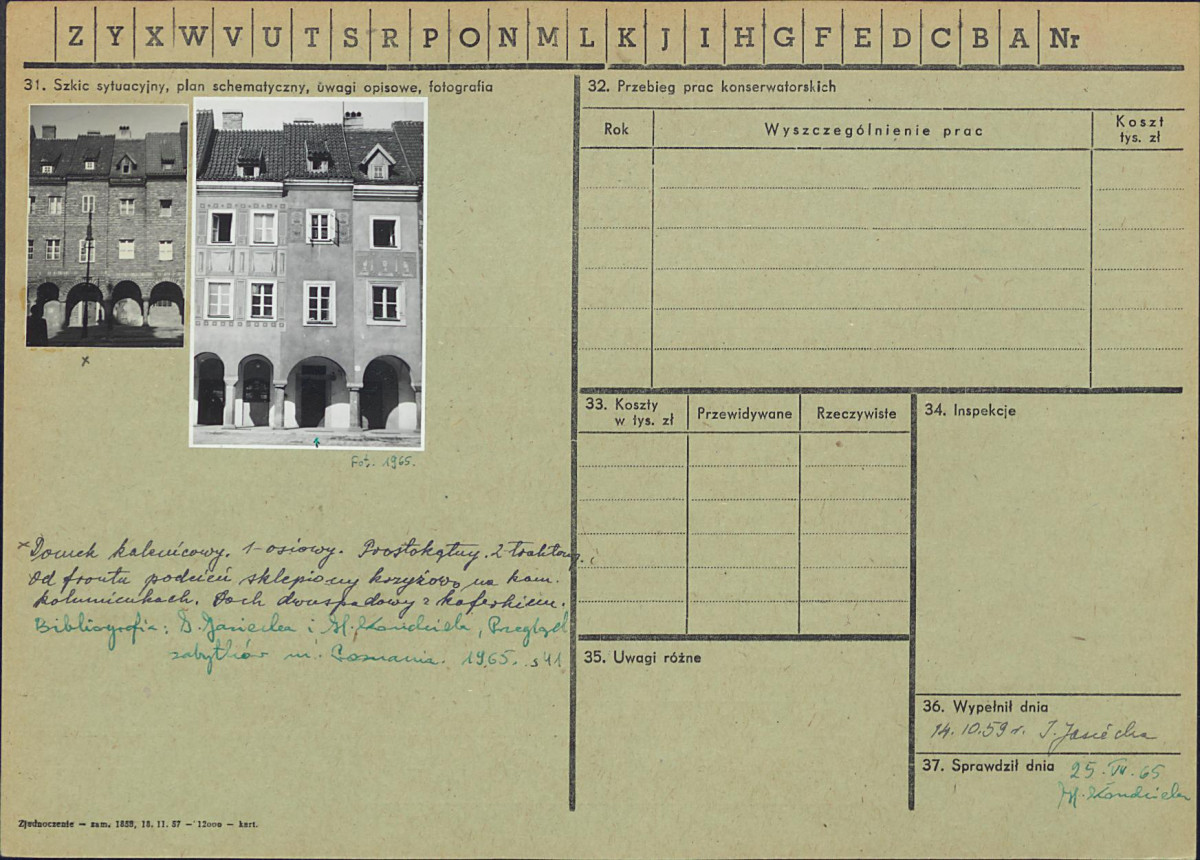 Z Y X W V U T S R P O N M L K J I H G F E D C B A Nr
31. Szkic sytuacyjny, plan schematyczny, uwagi opisowe, fotografia
x
Fot. 1965.
x Domek kalenicowy. 1-osiowy. Prostokątny. 2 traktowy.
Od frontu podcień sklepiony krzyżowo na kam.
kolumienkach. Dach dwuspadowy z kaferkiem.
Bibliografia: I. Jasiecka i H. Kondziela, Przegląd
zabytków m. Poznania. 1965. s 41
32. Przebieg prac konserwatorskich
Rok Wyszczególnienie prac Koszt tys. zł
33. Koszty w tys. zł Przewidywane Rzeczywiste
34. Inspekcje
35. Uwagi różne
36. Wypełnił dnia
14. 10. 59 r. I. Jasiecka
37. Sprawdził dnia 25. VI. 65
H. Kondziela
Zjednoczenie — zam. 1858, 18. 11. 57 — 12000 — kart.